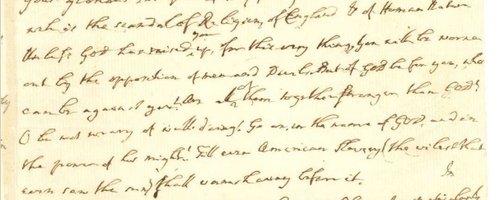 your glorious
wch is the scandal of Religion, of England & of Human Nature
Unless God has raised you up, for this very thing, You will be worne
out by the opposition of men and Devils. But if God be for you, who
can be against you? Are all of them together stronger than God?
O be not weary of well-doing! Go on, in the name of GOD, and in
the power of his might! Till even American Slavery (the vilest that
ever saw the sun) shall vanish away before it.